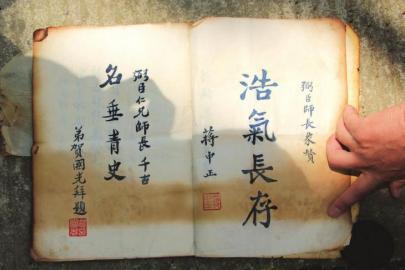 弼臣師長象贊
浩氣長存
蔣中正
弼臣仁兄師長千古
名垂青史
弟賀國光拜題